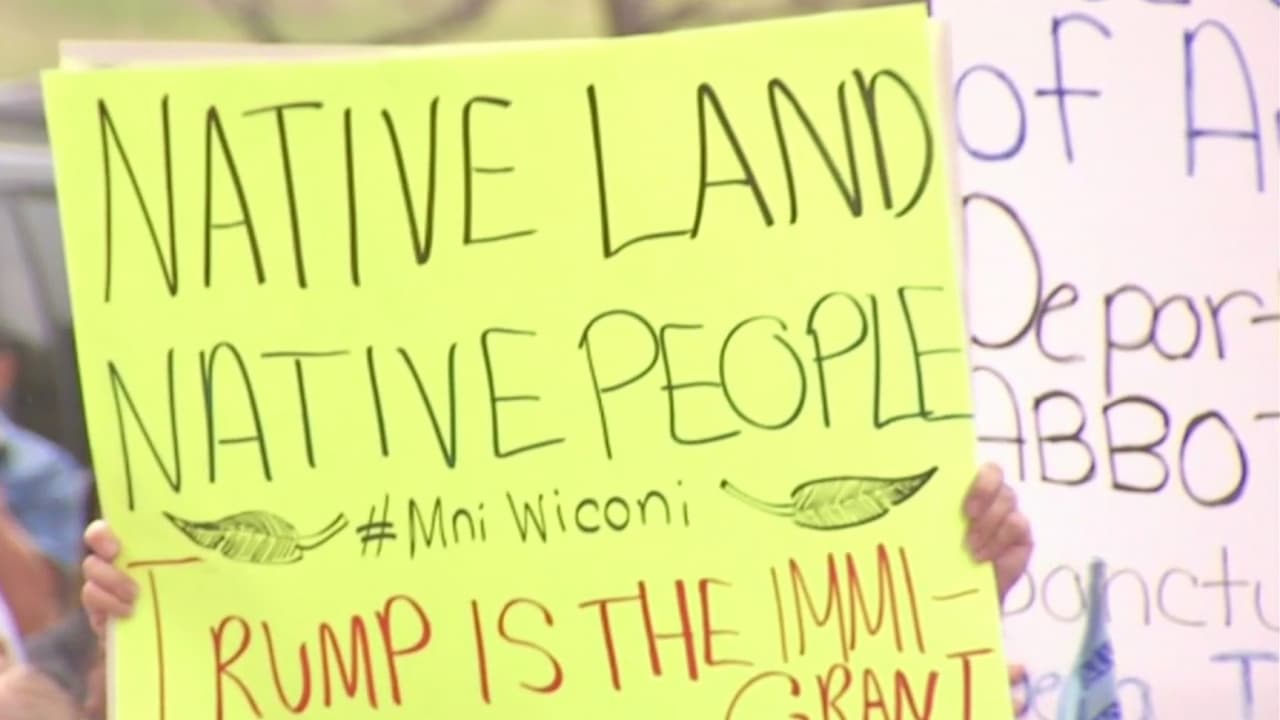 NATIVE LAND
NATIVE PEOPLE
#Mni Wiconi
TRUMP IS THE IMMI-
GRANT
of A
Depor-
ABBO